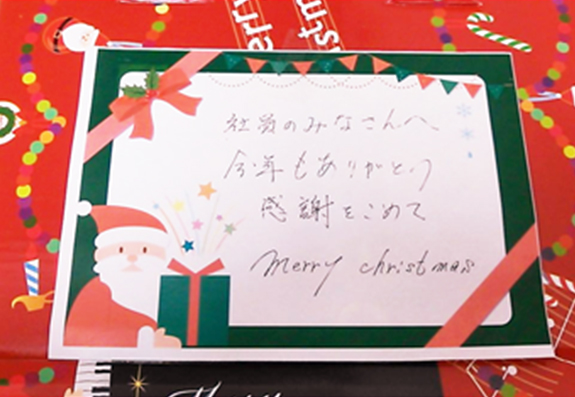 社員のみなさんへ
今年もありがとう
感謝をこめて
Merry christmas